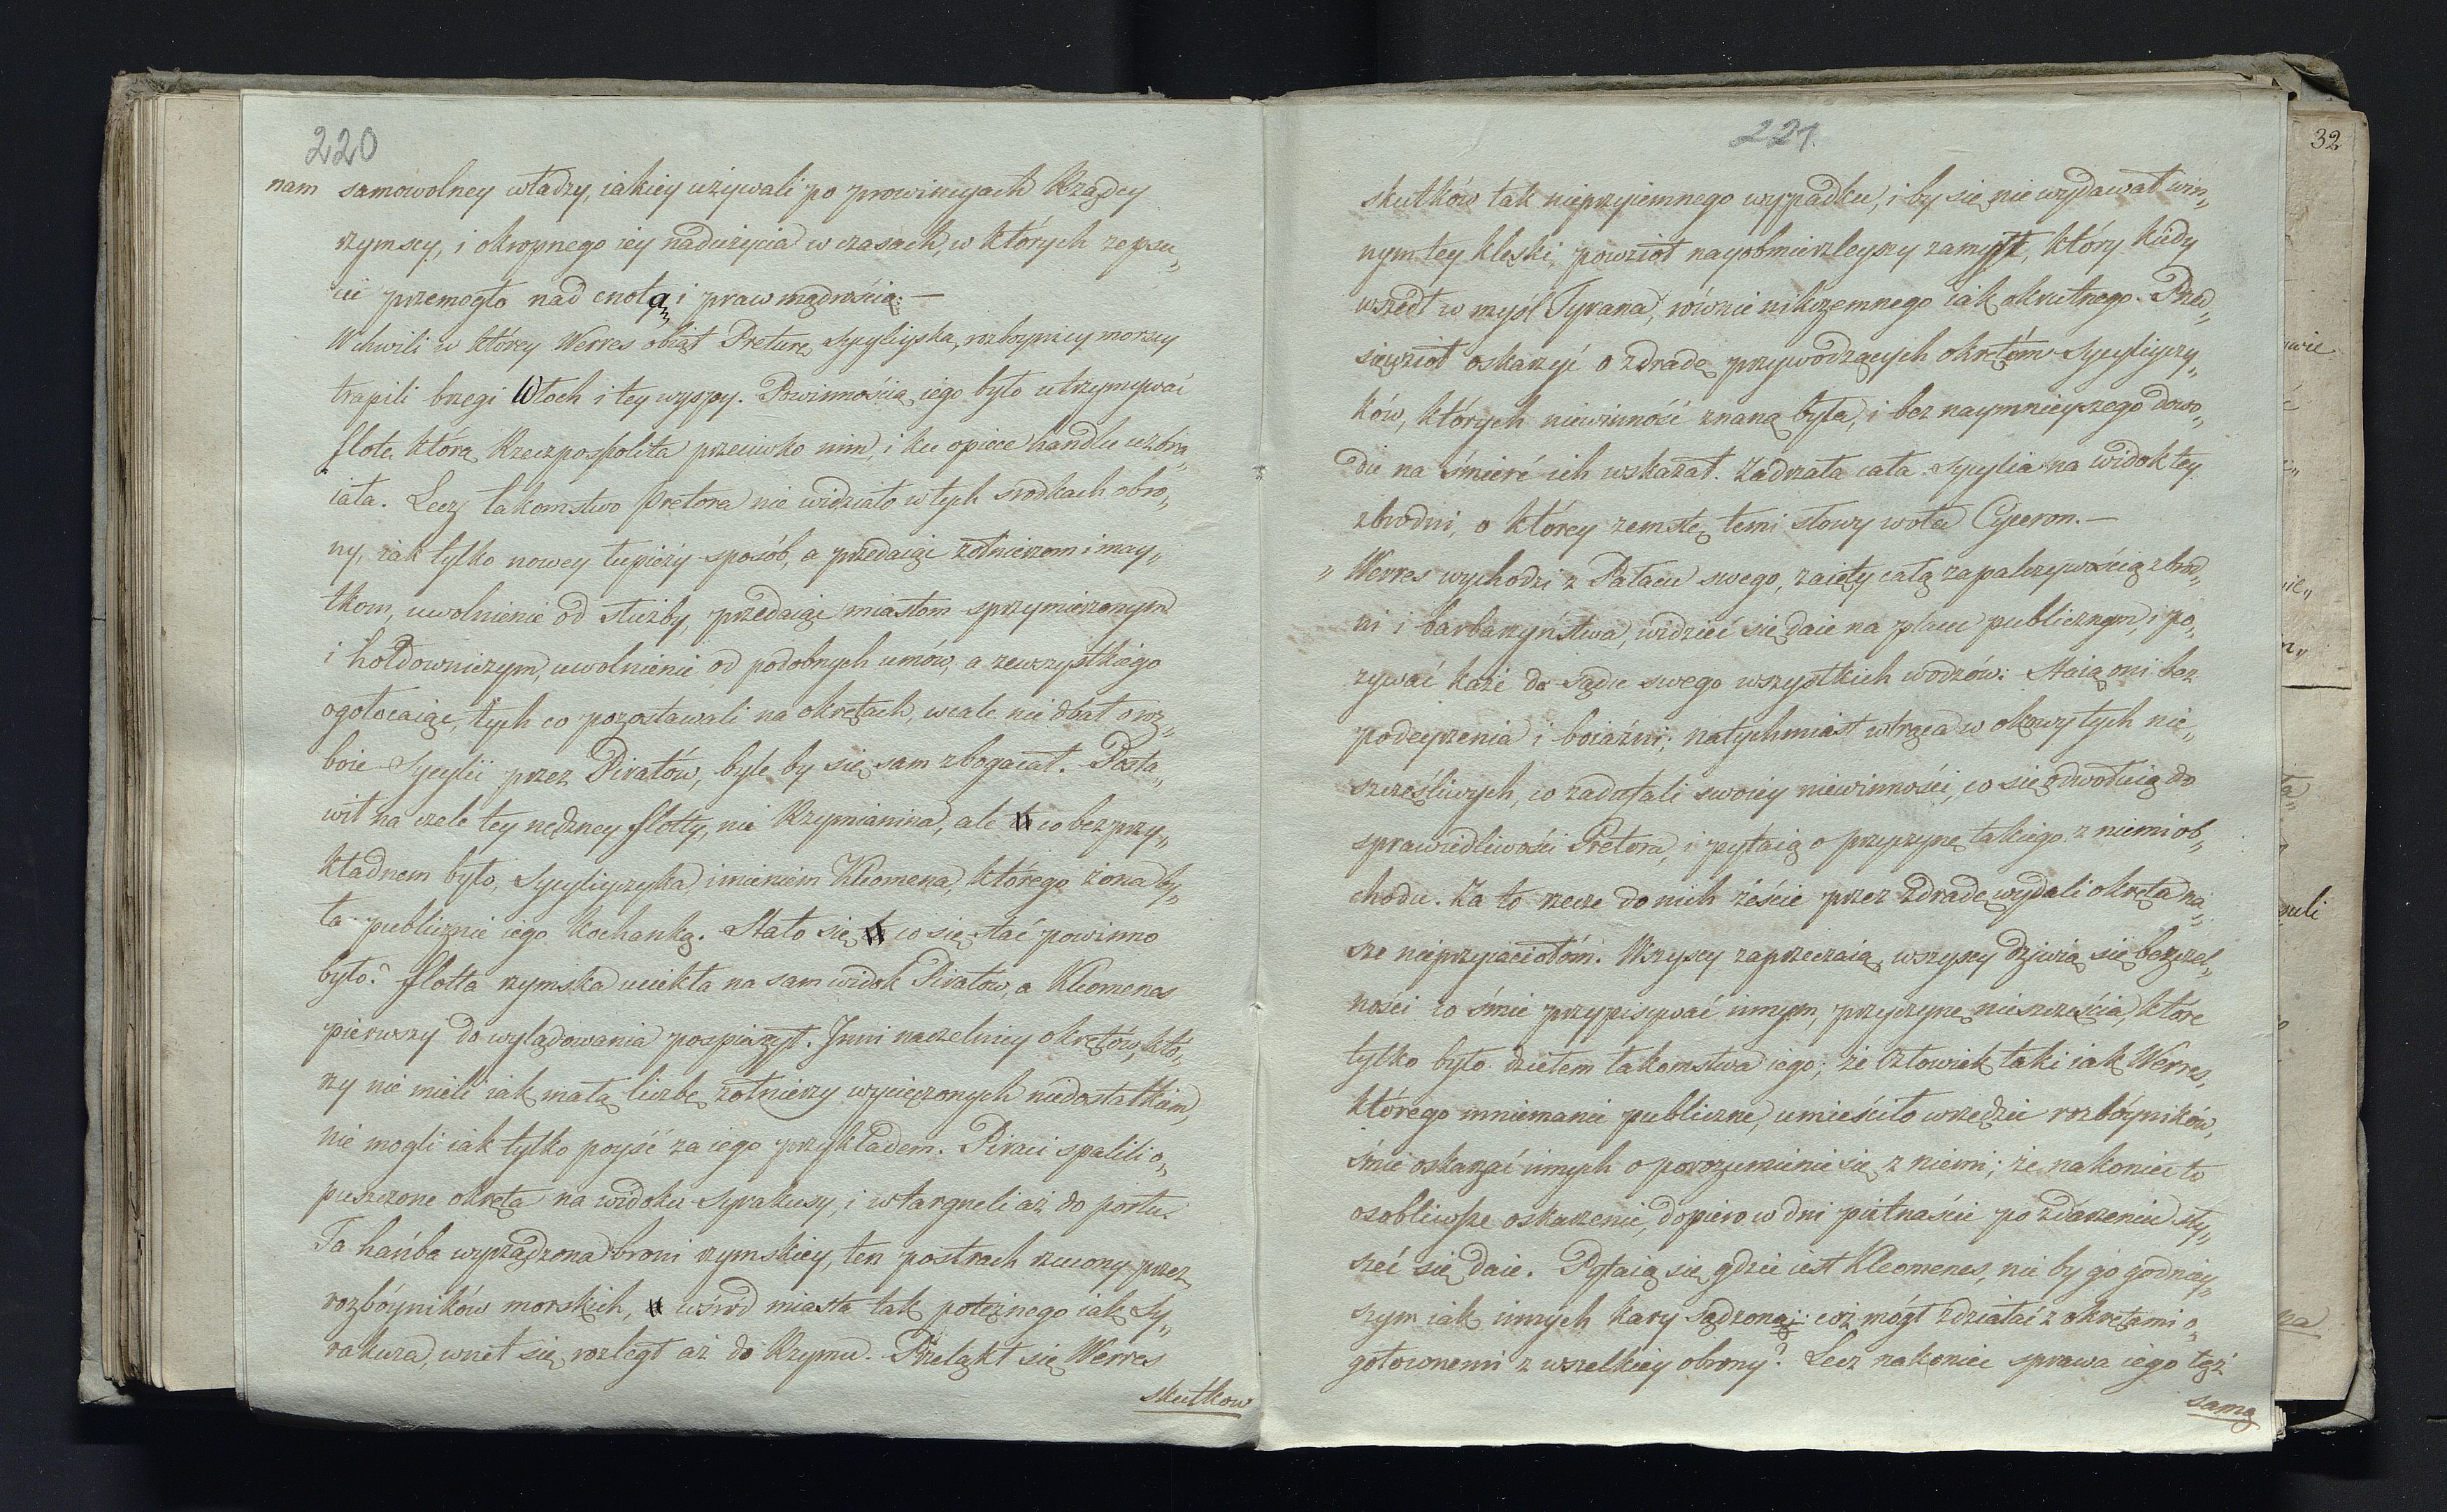 220
nam samowolney władzy, iakiey używali po prowincyach Rządcy
rzymscy, i okropnego iey nadużycia w czasach, w których zepsu„
cie przemogło nad cnotą i praw mądrością: —
W chwili w którey Werres obiął Preturę Sycyliyską, rozboynicy morscy
trapili brzegi Włoch i tey wyspy. Powinnością iego było utrzymywać
flotę którą Rzeczpospolita przeciwko nim, i ku opiece handlu uzbra„
iała. Lecz łakomstwo Pretora nie widziało w tych srodkach obro„
ny, iak tylko nowey łupieży sposób, a przedaiąc żołnierzom i may„
tkom, uwolnienie od służby, przedaiąc miastom sprzymierzonym
i hołdowniczym, uwolnienie od podobnych umów, a ze wszystkiego
ogołocaiąc, tych co pozostawali na okrętach, wcale nie dbał o roz„
boie Sycylii przez Piratów, byle by się sam zbogacał. Posta„
wił na czele tey nędzney flotty, nie Rzymianina, ale co bezprzy„
kładnem było, Sycyliyczyka, imieniem Kleomena, którego żona by„
ła publicznie iego kochanką. Stało się co się stać powinno
było: flotta rzymska uciekła na sam widok Piratów, a Kleomenes
pierwszy do wylądowania pospieszył. Inni naczelnicy okrętów, któ„
rzy nie mieli iak małą liczbę żołnierzy wycięczonych niedostatkiem,
nie mogli iak tylko poyść za iego przykładem. Piraci spalili o„
puszczone okręta na widoku Syrakuzy, i wtargneli aż do portu.
Ta hańba wyrządzona broni rzymskiey, ten postrach rzucony przez
rozbóyników morskich, wśród miasta tak potężnego iak Sy„
rakuza, wnet się rozległ aż do Rzymu. Przeląkł się Werres
skutkow
221.
skutków tak nieprzyiemnego wypadku, i by się nie wydawał win„
nym tey klęski, powziął nayobmierzleyszy zamysł, który kiedy
wszedł w myśl Tyrana, równie nikczemnego iak okrutnego. Przed„
sięwziął oskarżyć o zdradę przywodzących okrętóm Sycyliyczy„
ków, których niewinność znaną była, i bez naymnieyszego dowo„
du na śmierć ich wskazał. Zadrżała cała Sycylia na widok tey
zbrodni, o którey zemstę temi słowy woła Cyceron. —
„ Werres wychodzi z Pałacu swego, zaięty całą zapalczywością zbrod„
ni i barbarzyństwa, widzieć się daie na placu publicznym, i po„
zywać każe do sądu swego wszystkich wodzów: Staią oni bez
podeyrzenia i boiaźni; natychmiast wtrąca w okowy tych nie„
szczęśliwych, co zadufali swoiey niewinności, co się odwołuią do
sprawiedliwości Pretora, i pytaią o przyczynę takiego z niemi ob„
chodu. Za to rzecze do nich żeście przez zdradę wydali okręta na„
sze nieprzyiaciołóm. Wszyscy zaprzeczaią, wszyscy dziwią się bezczel„
ności co śmie przypisywać innym, przyczynę nieszczęścia, które
tylko było dziełem łakomstwa iego; że Człowiek taki iak Werres,
którego mniemanie publiczne, umieściło w rzędzie rozbóyników,
śmie oskarżać innych o porozumienie się z niemi; że nakoniec to
osobliwsze oskarżenie, dopiero w dni piętnaście po zdarzeniu sły„
szeć się daie. Pytaią się gdzie iest Kleomenes, nie by go godniey„
szym iak innych kary sądzono: coż mógł zdziałać z okrętami o„
gołoconemi z wszelkiey obrony? Lecz nakoniec sprawa iego tąż
samą
32